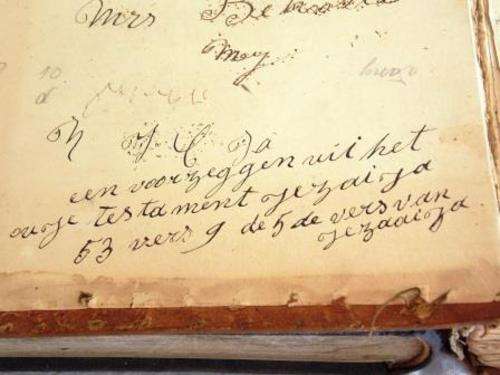 Mrs
Mey
N J C Ja
een voorzeggen uit het
ouje testament jezaija
53 vers 9 de 5 de vers van
jezaaija